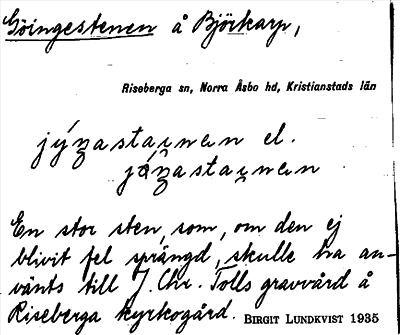 Göingestenen å Björkarp,
Riseberga sn, Norra Åsbo hd, Kristianstads län
jýŋastaɩnɐn el.
jǿŋastaɩnɐn
En stor sten, som, om den ej
blivit fel sprängd, skulle ha an-
vänts till J. Chr. Tolls gravvård å
Riseberga kyrkogård. BIRGIT LUNDKVIST 1935